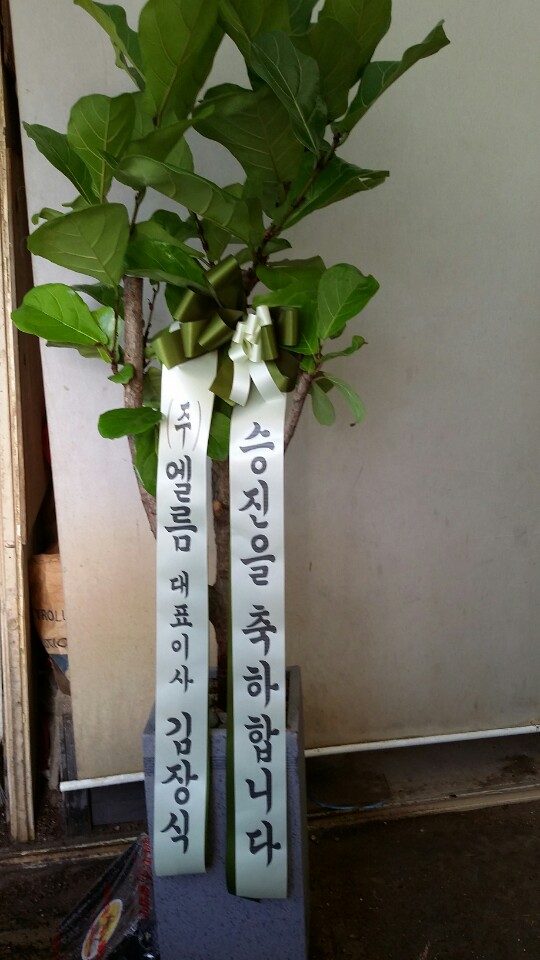 승진을 축하합니다
(주)엘름 대표이사 김장식
TROLL